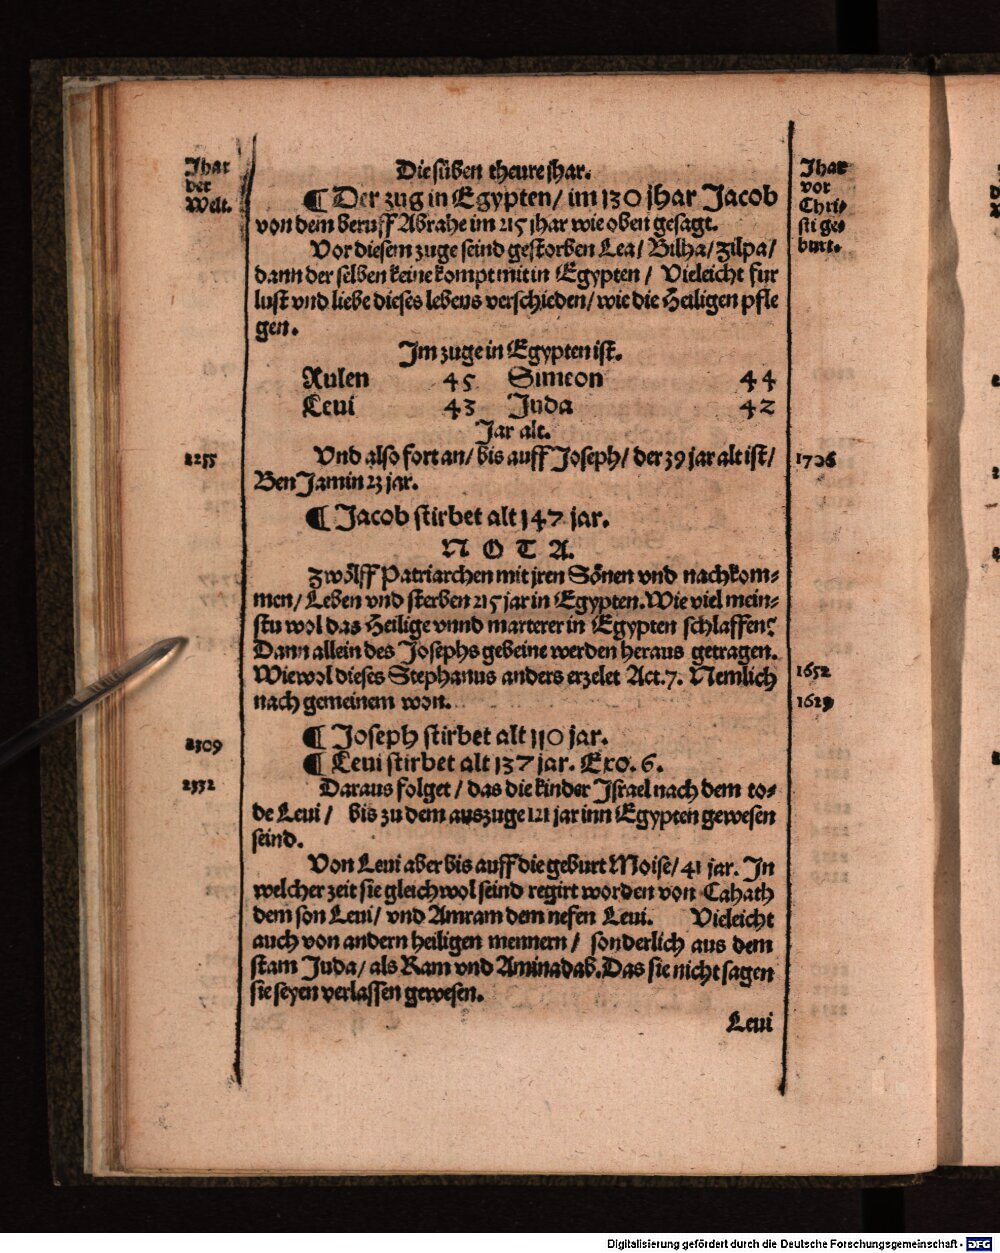 Jhar
der
Welt.
Jhar
vor
Chri⸗
sti ge⸗
burt.
Die süben theure jhar.
¶ Der zug in Egypten/ im 130 jhar Jacob
von dem beruff Abrahe im 215 jhar wie oben gesagt.
Vor diesem zuge seind gestorben Lea/ Bilha/ zilpa/
dann der selben keine kompt mit in Egypten/ Vieleicht fur
lust vnd liebe dieses lebens verschieden/ wie die Heiligen pfle
gen.
Im zuge in Egypten ist.
Rulen 45 Simeon 44
Leui 43 Juda 42
Jar alt.
2255 Vnd also fort an/ bis auff Joseph/ der 39 jar alt ist/ 1706
BenJamin 23 jar.
¶ Jacob stirbet alt 147 jar.
NOTA.
zwölff Patriarchen mit jren Sönen vnd nachkom⸗
men/ Leben vnd sterben 215 jar in Egypten. Wie viel mein⸗
stu wol das Heilige vnnd marterer in Egypten schlaffen?
Dann allein des Josephs gebeine werden heraus getragen.
Wiewol dieses Stephanus anders erzelet Act. 7. Nemlich 1652
nach gemeinem won. 1629
2309 ¶ Joseph stirbet alt 110 jar.
¶ Leui stirbet alt 137 jar. Exo. 6.
2332 Daraus folget/ das die kinder Israel nach dem to⸗
de Leui/ bis zu dem auszuge 121 jar inn Egypten gewesen
seind.
Von Leui aber bis auff die geburt Moise/ 41 jar. In
welcher zeit sie gleichwol seind regirt worden von Cahath
dem son Leui/ vnd Amram dem nefen Leui. Vieleicht
auch von andern heiligen mennern/ sonderlich aus dem
stam Juda/ als Ram vnd Aminadab. Das sie nicht sagen
sie seyen verlassen gewesen.
Leui
Digitalisierung gefördert durch die Deutsche Forschungsgemeinschaft - DFG